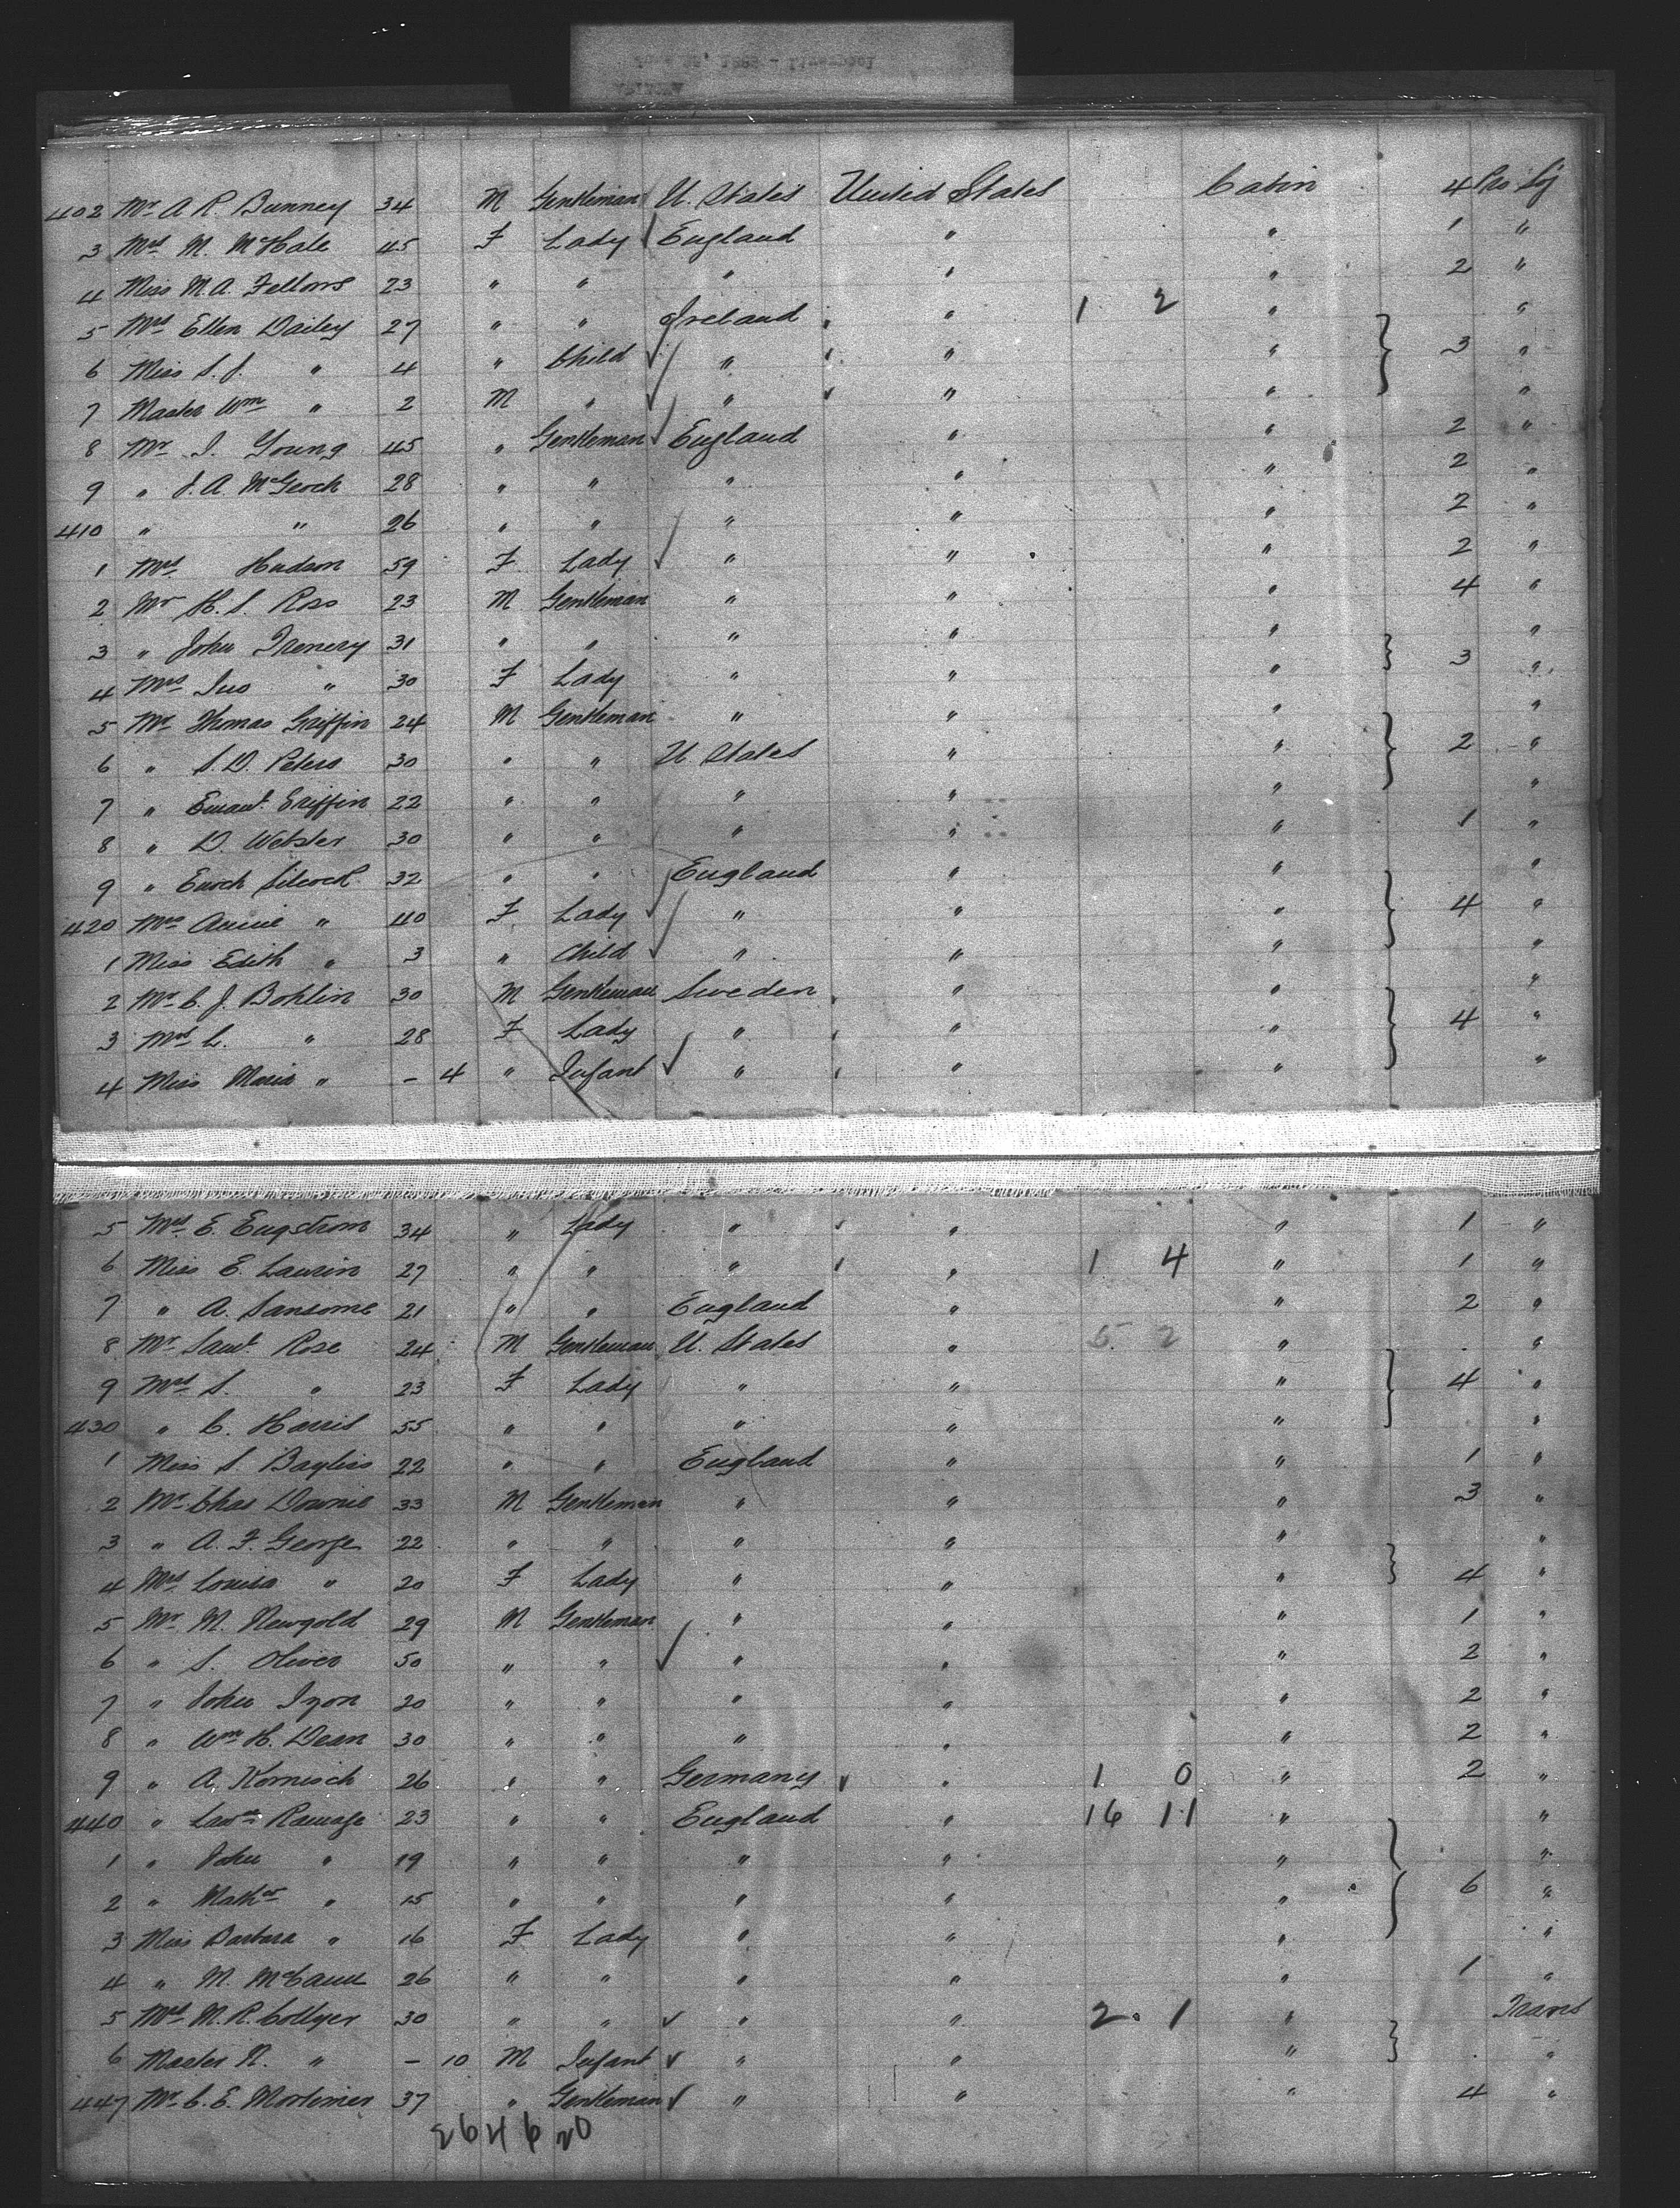 402 Mr A R. Bunney 34 M Gentleman U. States United States Cabin 4 Pro Lg
3 Mrs M. McHale 45 F Lady England " " 1 "
4 Miss M.A. Fellows 23 " " " " " 2 "
5 Mrs Ellen Dailey 27 " " Ireland " 1 2 " "
6 Miss S. J. " 4 " Child " " " 3 "
7 Master Wm " 2 M " " " " "
8 Mr J. Young 45 " Gentleman England " " 2 "
9 " J. A. McGeoch 28 " " " " " 2 "
410 " " 26 " " " " " 2 "
1 Mrs Hudson 59 F Lady " " " 2 "
2 Mr H. S. Ross 23 M Gentleman " " " 4 "
3 " John Trenery 31 " " " " " "
4 Mrs Jno " 30 F Lady " " " 3 "
5 Mr Thomas Griffin 24 M Gentleman " " " "
6 " S. D. Peters 30 " " U. States " " 2 "
7 " Griffin 22 " " " " " "
8 " D. Webster 30 " " " " " 1 "
9 " Enoch Silcock 32 " " England " " "
420 Mrs Annie " 40 F Lady " " " 4 "
1 Miss Edith " 3 " Child " " " "
2 Mr C. J. Bohlin 30 M Gentleman Sweden " " "
3 Mrs L. " 28 F Lady " " " 4 "
4 Miss Maria " - 4 " Infant " " " "
5 Mrs E. Engstrom 34 " Lady " " " 1 "
6 Miss E. Laurin 27 " " " " 1 4 " 1 "
7 " A. Sansome 21 " " England " " 2 "
8 Mr Saml Rose 24 M Gentleman U. States " 5 2 " "
9 Mrs S. " 23 F Lady " " " 4 "
430 " C. Harris 55 " " " " " "
1 Miss S. Bayliss 22 " " England " " 1 "
2 Mr Chas Downie 33 M Gentleman " " " 3 "
3 " A. F. George 22 " " " " " "
4 Mrs Louisa " 20 F Lady " " " 4 "
5 Mr M. Newgold 29 M Gentleman " " " 1 "
6 " S. Oliver 50 " " " " " 2 "
7 " John Izon 20 " " " " " 2 "
8 " Wm H. Dean 30 " " " " " 2 "
9 " A. Kornisch 26 " " Germany " 1 0 " 2 "
440 " Lawce Ramage 23 " " England " 16 11 " "
1 " John " 19 " " " " " "
2 " Mathw " 15 " " " " " 6 "
3 Miss Barbara " 16 F Lady " " " "
4 " M. McCann 26 " " " " " 1 "
5 Mrs M. R. Collyer 30 " " " " 2 1 " Trans
6 Master R. " - 10 M Infant " " " "
447 Mr C. E. Mortimer 37 " Gentleman " " " 4 "
26 4 6 20